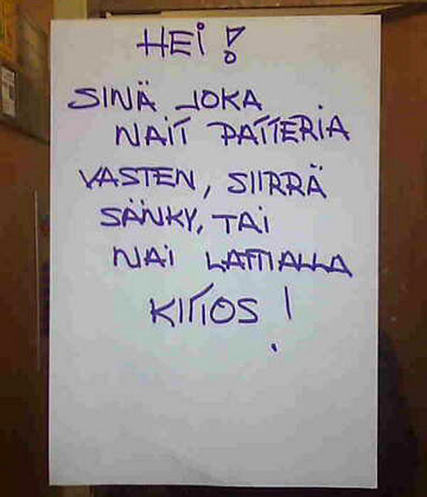 HEI!
SINÄ JOKA
NAIT PATTERIA
VASTEN, SIIRRÄ
SÄNKY, TAI
NAI LATTIALLA
KIITOS!